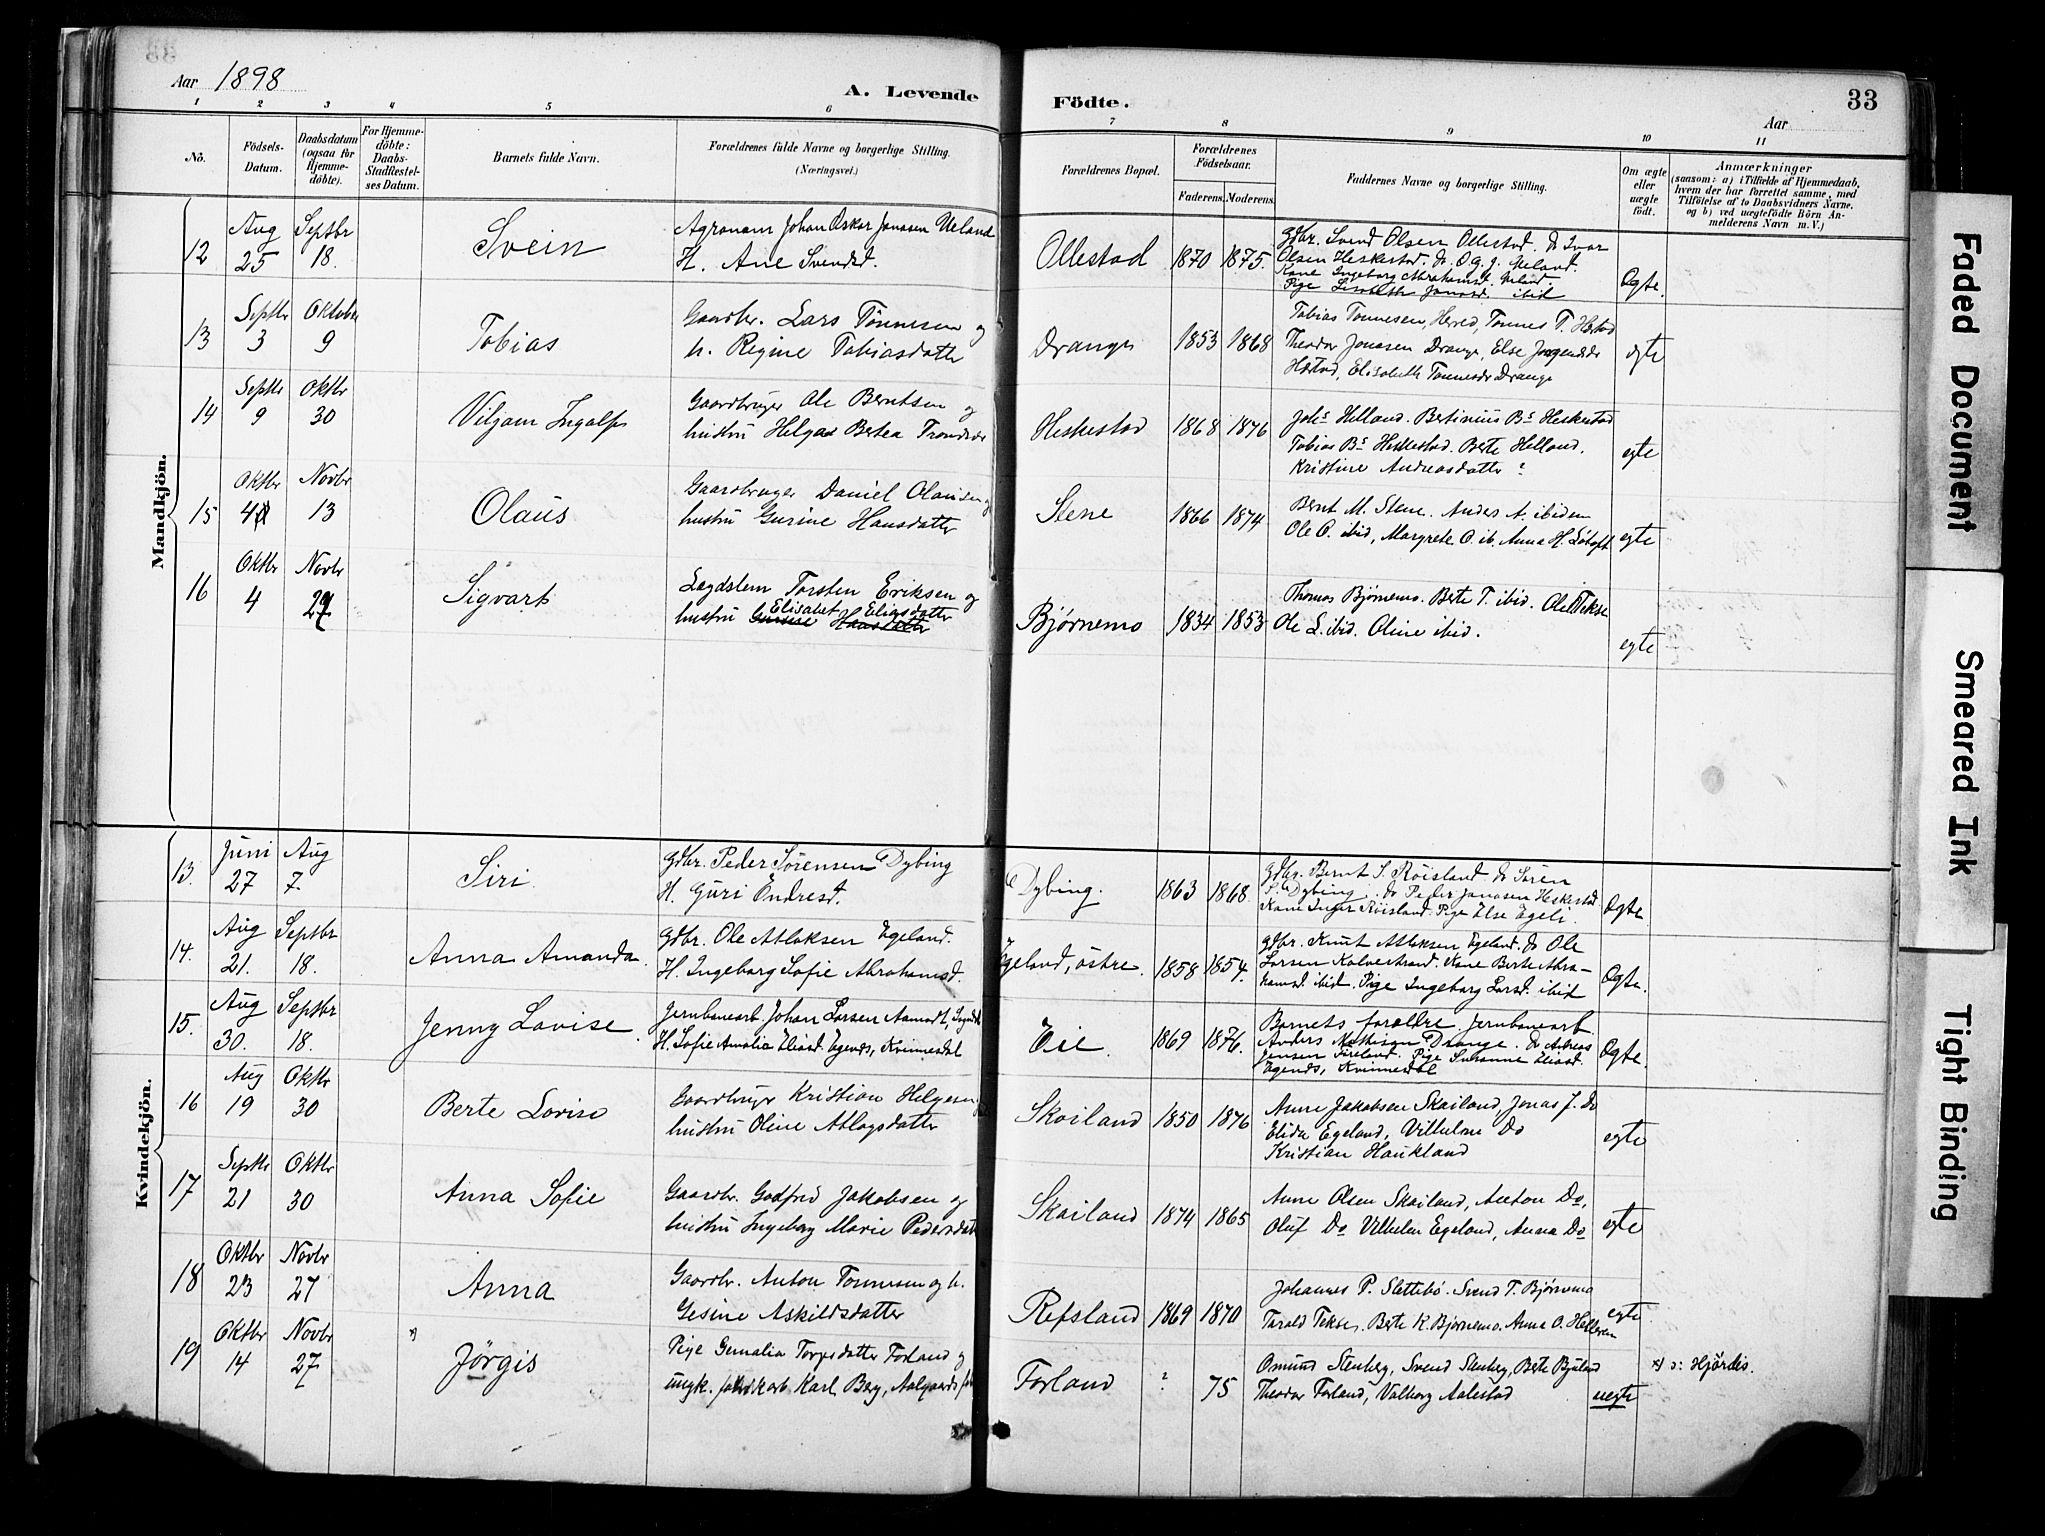 Aar 1898
A. Levende Födte.
33
Aar
1 2 3 4 5 6 7 8 9 10 11
No.
Födsels-Datum.
Daabsdatum (ogsaa for Hjemme-döbte).
For Hjemme-döbte: Daabs-Stadfæstel-ses Datum.
Barnets fulde Navn.
Forældrenes fulde Navne og borgerlige Stilling. (Næringsvei.)
Forældrenes Bopæl.
Forældrenes Födselsaar.
Faderens. Moderens.
Faddernes Navne og borgerlige Stilling.
Om ægte eller uægte födt.
Anmærkninger
(saasom: a) i Tilfælde af Hjemmedaab, hvem der har forrettet samme, med Tilföielse af to Daabsvidners Navne, og b) ved uægtefödte Börn An-melderens Navn m. V.)
Mandkjön.
12 Aug 25 Septbr 18. Svein
Agronom Johan Oskar Jonasen Ueland
H. Ane Svendsd.
Ollestad 1870 1875.
Gdbr. Svend Olsen Ollestad. Do Ivar
Olsen Heskestad. do. O. G. J. Ueland.
Kone Ingeborg Abrahamsd. Ueland.
Pige Lisabeth Jonasd. ibid
Ægte.
13 Septbr 3 Oktober 9 Tobias
Gaardbr. Lars Tönnesen og
h. Regine Tobiasdatter
Drange 1853 1868
Tobias Tonnesen, Hered, Tonnes T. Hæstad
Theodor Jonasen Drange, Else Jorgensdr
Hæstad, Elisabeth Tonnesdr Drange
egte
14 Septbr 9 Oktbr 30 Viljam Ingolf
Gaardbruger Ole Berntsen og
hustru Helga Bertea Trondsdr
Heskestad 1868 1876
Johs Helland. Bertinius Bs Heskestad
Tobias Bs Heskestad. Berte Helland.
Kristine Andreasdatter?
egte
15 Oktbr 4 Novbr 13 Olaus
Gaardbruger Daniel Olausen og
hustru Gurine Hansdatter
Stene 1866 1874
Bernt M. Stene. Anders A. ibidem
Ole O. ibid, Margrete O. ib. Anna H. Løtoft
egte
16 Oktbr 4 Novbr 27 Sigvart
Lægdslem Torsten Eriksen og
hustru Elisabet Eliasdatter
Gurine Hansdatter
Bjørnemo 1834 1853
Thomas Bjørnemo. Berte T. ibid. Ole Tekse
Ole L. ibid. Oline ibid.
egte
Kvindekjön.
13. Juni 27 Aug 7. Siri.
Gdbr. Peder Sörensen Dybing
H. Guri Endresd.
Dybing. 1863 1868.
Gdbr. Bernt S. Röisland do Sören
S. Dybing. do Peder Jonasen Heskestad
Kone Inger Röisland. Pige Else Egeli.
Ægte.
14. Aug 21. Septbr 18. Anna Amanda.
Gdbr. Ole Atlaksen Egeland.
H. Ingeborg Sofie Abrahamsd.
Egeland, östre. 1858 1854.
Gdbr. Knut Atlaksen Egeland. do Ole
Larsen Kalvestrand. Kone Berte Abra-
hamsd. ibid. Pige Ingeborg Larsd. ibid
Ægte.
15. Aug 30. Septbr 18. Jenny Lovise.
Jernbanearb. Johan Larsen Aamodt,
H. Sofie Amalie Eliasd. Egends, Kvinnesdal
Eie. 1869 1876.
Barnets forældre. Jernbanearb.
Anders Mathisen Drange. Do Andreas
Jensen Förland. Pige Susanne Eliasd.
Egends, Kvinnesdal
Ægte.
16 Aug 19 Oktbr 30 Berte Lovise
Gaardbruger Kristian Helgesen
hustru Oline Atlagsdatter
Skoiland 1850 1876
Anne Jakobsen Skailand, Jonas J. Do
Elida Egeland, Vilhelm Do
Kristian Haukland
egte
17 Septbr 21 Oktbr 30 Anna Sofie
Gaardbr. Godfred Jakobsen og
hustru Ingeborg Marie Pedersdat
Skailand 1874 1865
Anne Olsen Skailand, Anton Do,
Oluf Do Vilhelm Egeland, Anna Do
egte
18 Oktbr 23 Novbr 27 Anna
Gaardbr. Anton Tonnesen og h.
Gesine Askildsdatter
Refsland 1869 1870
Johannes P. Slettebö. Svend T. Bjørnemo
Tarald Tekse. Berte K. Bjørnemo. Anna O. Helleren
egte
19 Oktbr 14 Novbr 27 *) Jörgis
Pige Gemalia Torgersdatter Forland og
ungk. Karl Berg, Aalgaards
Forland ? 75
Osmund Stenberg, Svend Stenberg, Berte Bjuland
Theodor Forland, Valborg Aalestad
uegte
*) ɔ: Hjördis.
Faded Document
Smeared Ink
Tight Binding